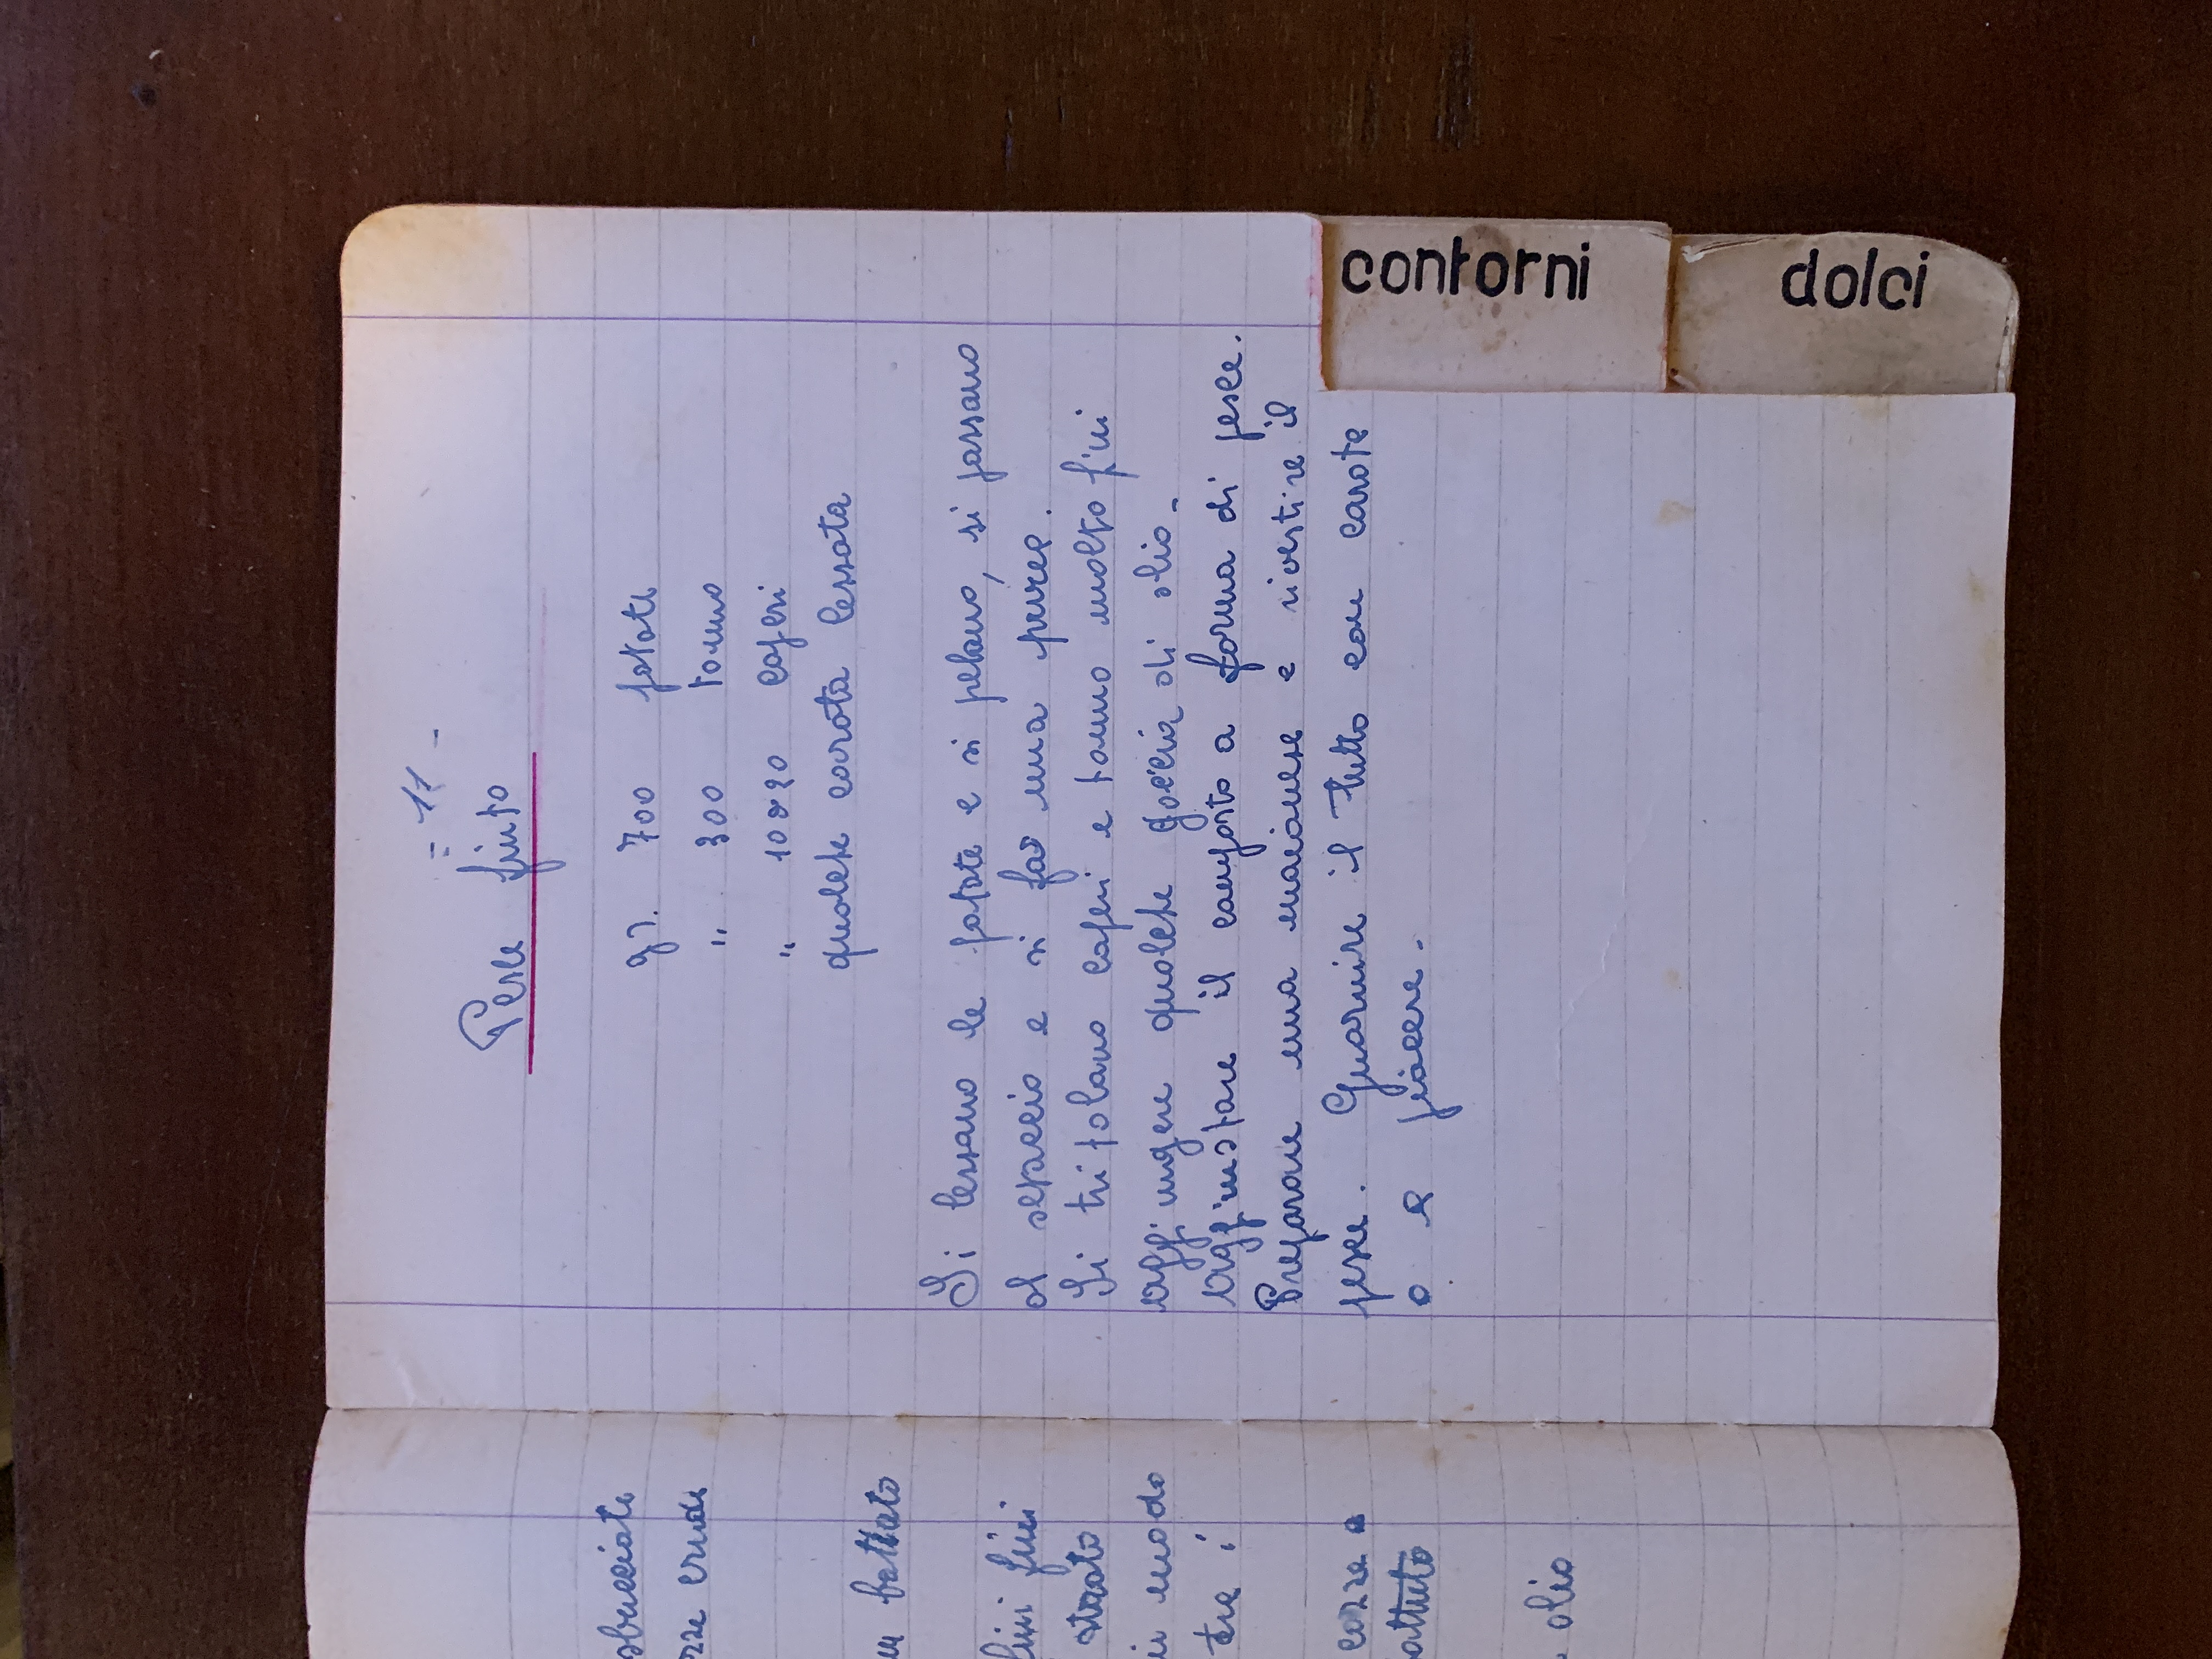 sbucciate
crude
battuto
fini fini
strato
modo
tre i
cozze e
battuto
olio
- 11 -
Pesce finto
gr. 700 patate
" 300 tonno
" 10 o 20 caperi
qualche carota lessata
Si lessano le patate e si pelano, si passano
al setaccio e si fa una purea.
Si tritolano caperi e tonno molto fini
Aggiungere qualche goccia di olio -
Aggiustare il composto a forma di pesce.
Preparare una maionese e rivestire il
pesce. Guarnire il tutto con carote
o a piacere.
contorni
dolci